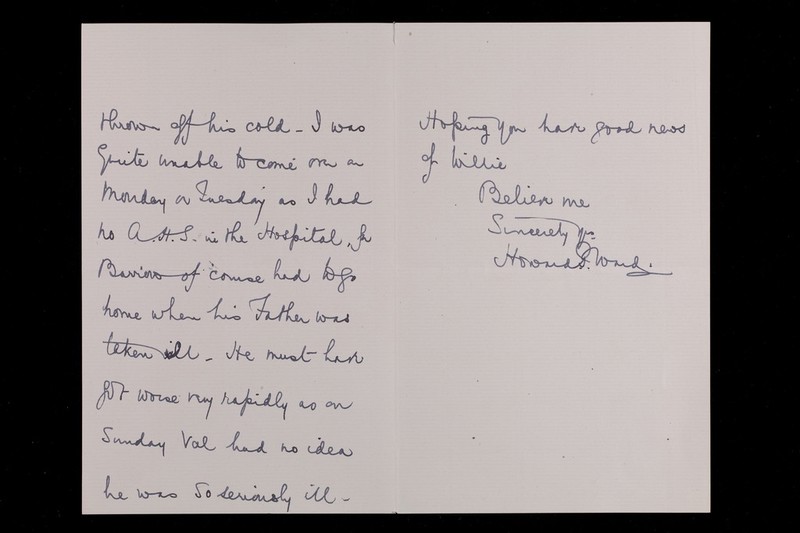 thrown off his cold - I was
Quite unable to come over on
Monday or Tuesday as I had
no A.H.S. in the Hospital, for
of course had to go
home when his Father was
taken ill - He must have
got worse very rapidly as on
Sunday Val had no idea
he was so seriously ill -
Hoping you have good news
of Willie
Believe me
Sincerely yrs
Howard F. Ward.